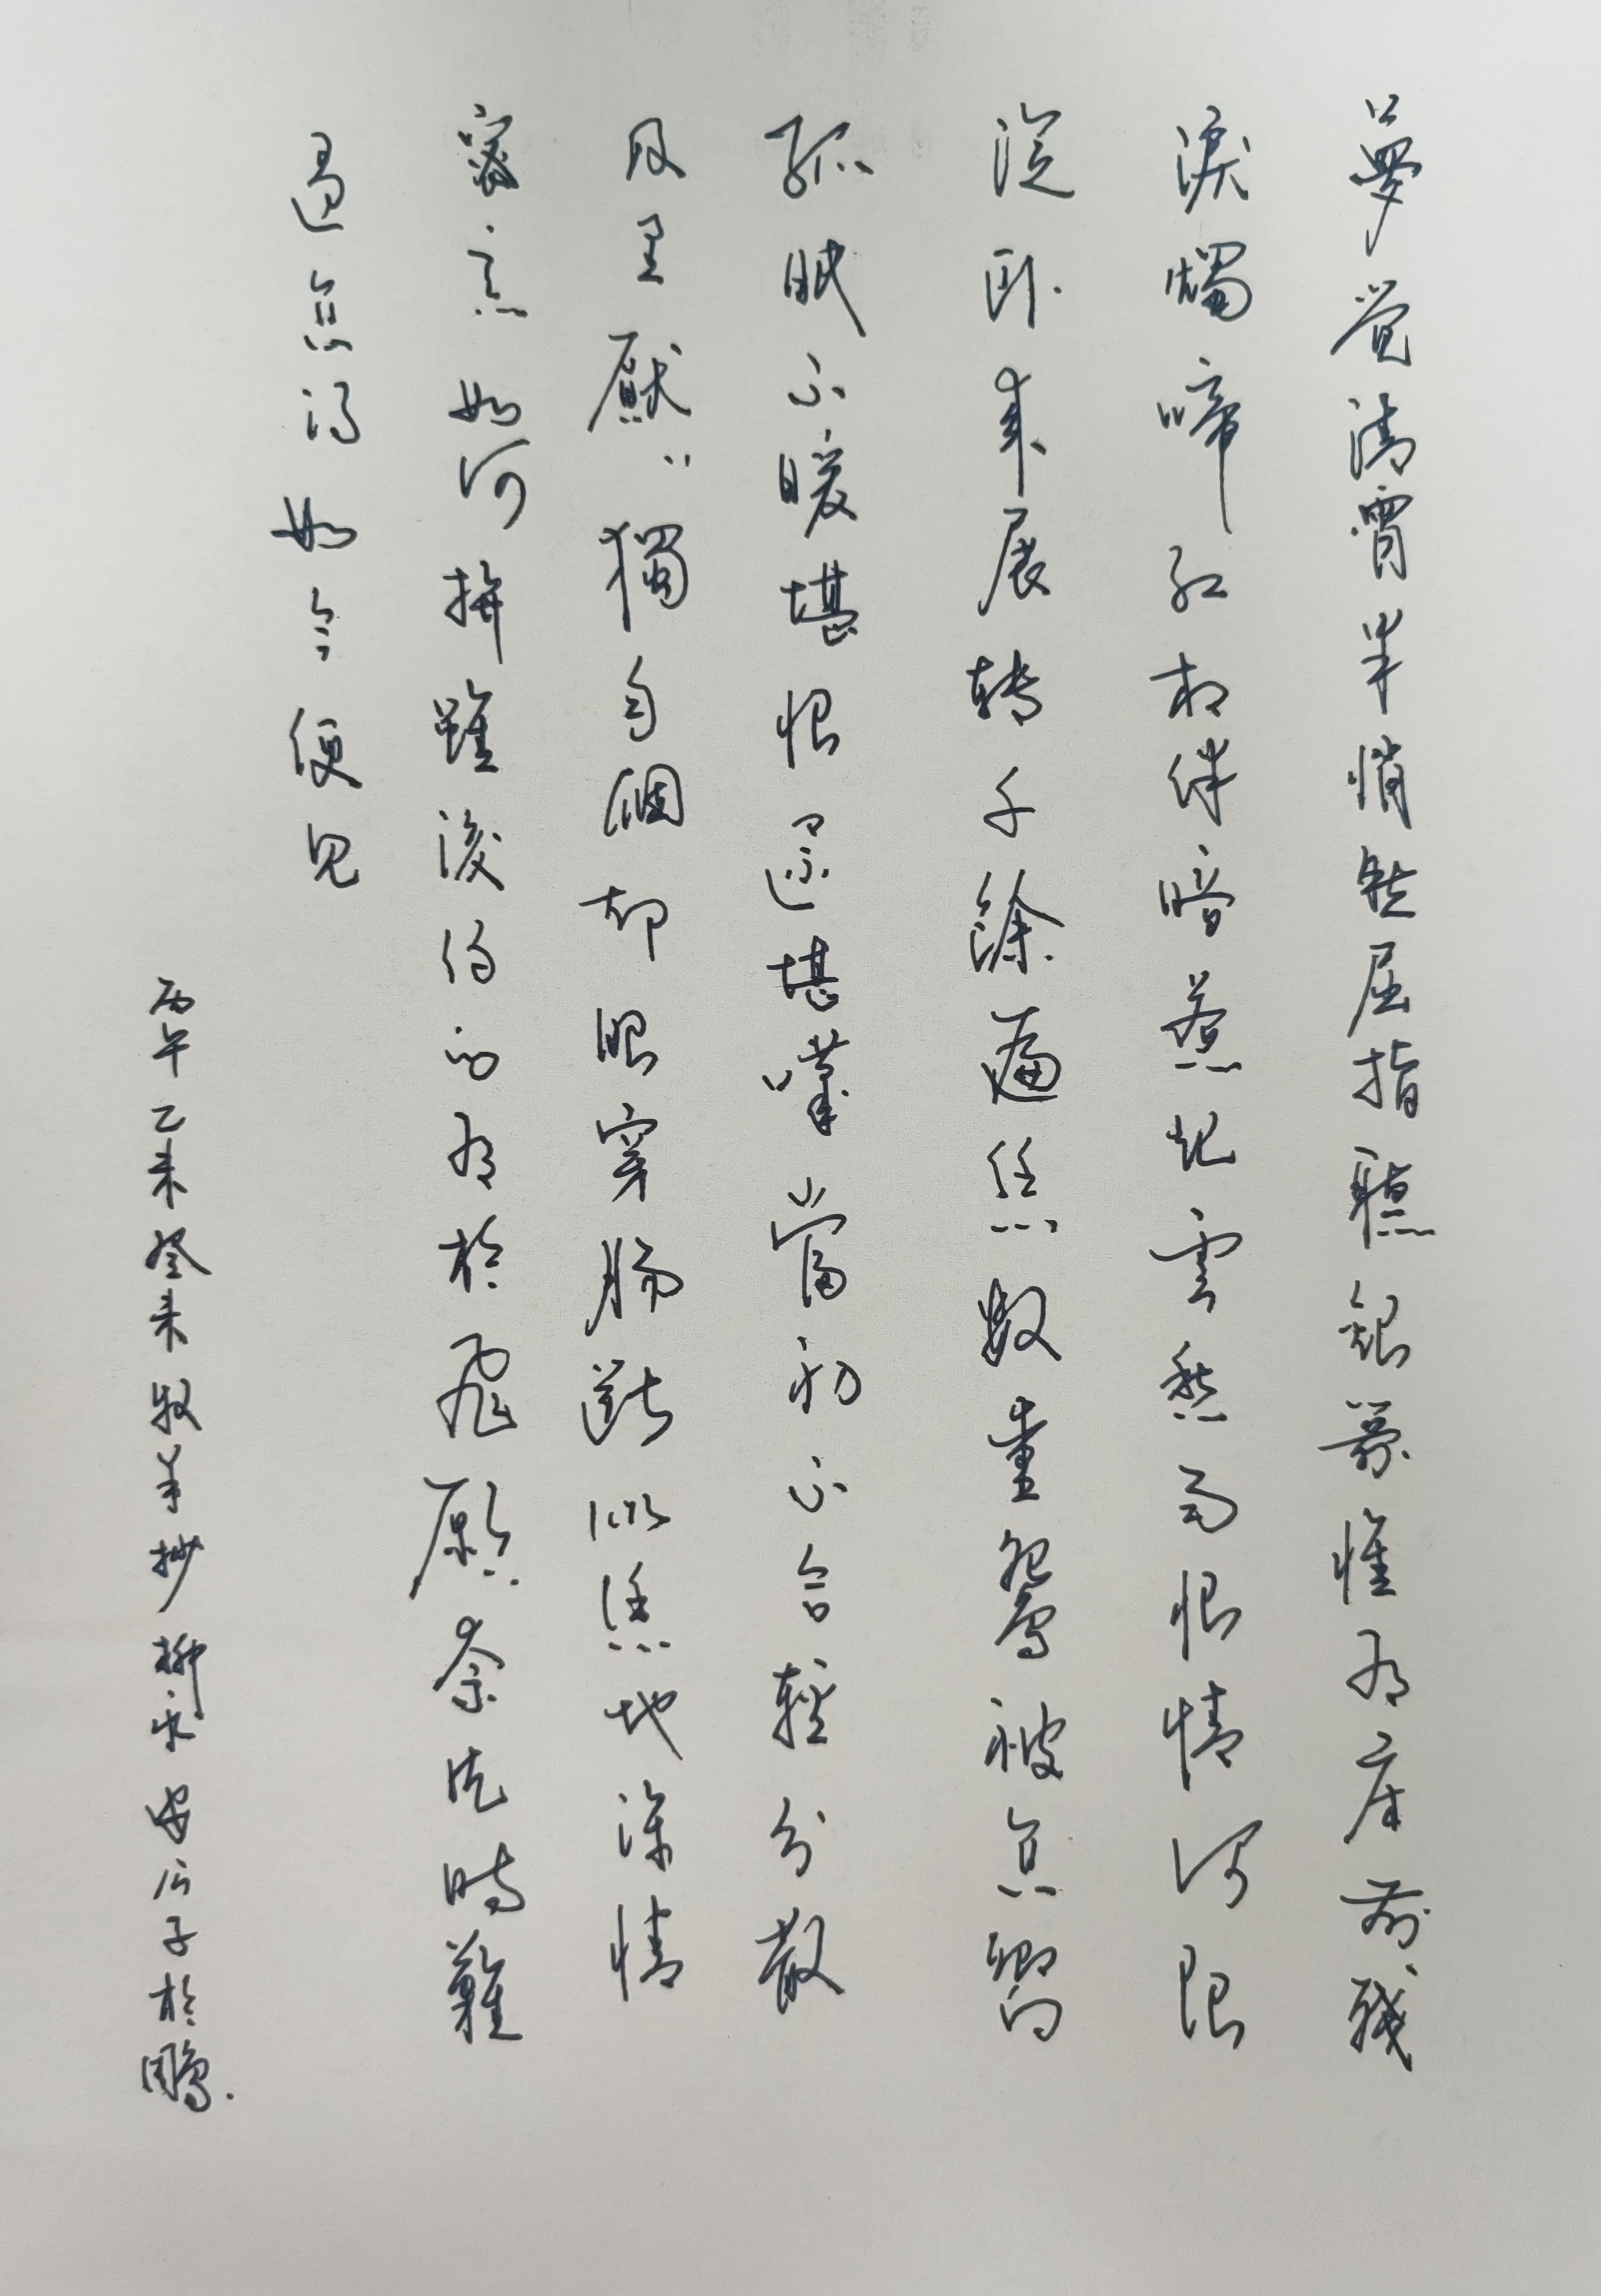 夢覺清宵半悄然屈指聽銀箭惟有床前殘
淚燭啼紅相伴暗惹起雲愁雨恨情何限
從臥來展轉千餘遍恁數重鴛被怎嚮
孤眠不暖堪恨還堪嘆當初不合輕分散
及至厭〻獨自個却眼穿腸斷似恁地深情
密意如何拚雖後約的有於飛願奈片時難
過怎得如今便見
丙午乙未癸未牧羊抄柳永安公子於鵬